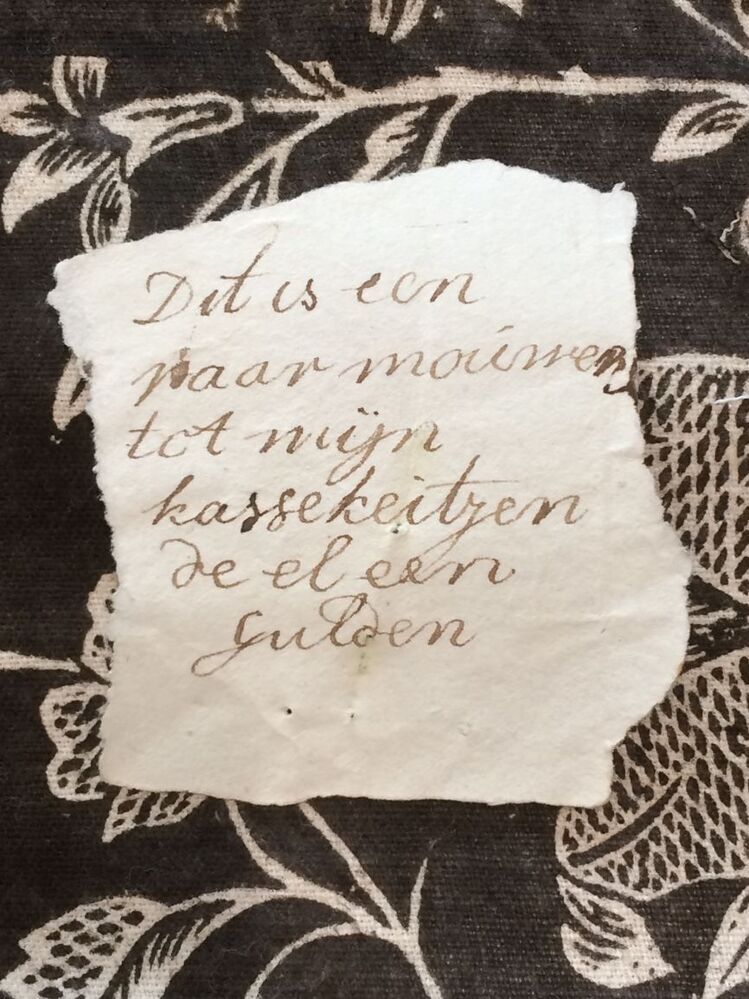 Dit is een
paar mouwen
tot mijn
kassekeitzen
de el een
gulden